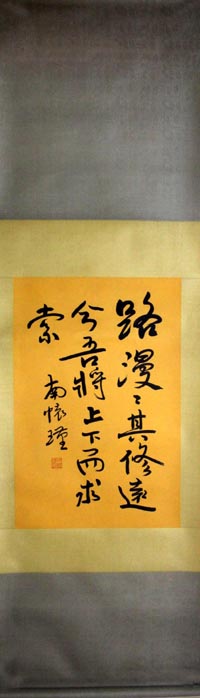 路漫〻其修遠
兮吾將上下而求
索
南懷瑾